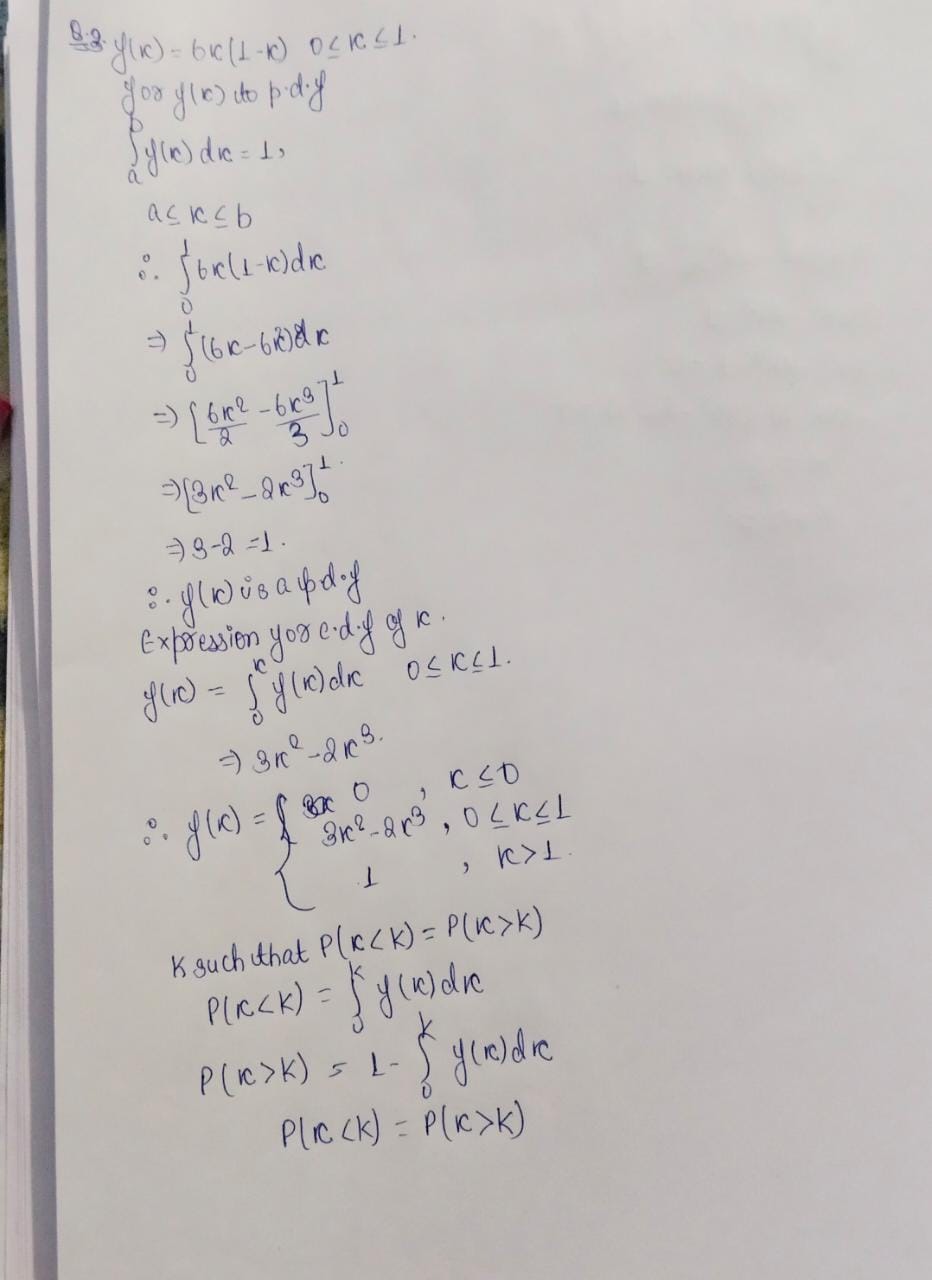 Q.3. f(x) = 6x(1-x) 0≤x≤1.
for f(x) to p.d.f
∫ₐᵇ f(x) dx = 1,
a≤x≤b
∴ ∫₀¹ 6x(1-x)dx
⇒ ∫₀¹ (6x-6x²)dx
⇒ [6x²/2 - 6x³/3]₀¹
⇒ [3x² - 2x³]₀¹.
⇒ 3-2 = 1.
∴ f(x) is a p.d.f
Expression for c.d.f of x.
f(x) = ∫₀ˣ f(x)dx 0≤x≤1.
⇒ 3x² - 2x³.
∴ f(x) = { 0 , x≤0
3x² - 2x³ , 0≤x≤1
1 , x>1.
K such that P(x<K) = P(x>K)
P(x<K) = ∫₀ᴷ f(x)dx
P(x>K) = 1 - ∫₀ᴷ f(x)dx
P(x<K) = P(x>K)